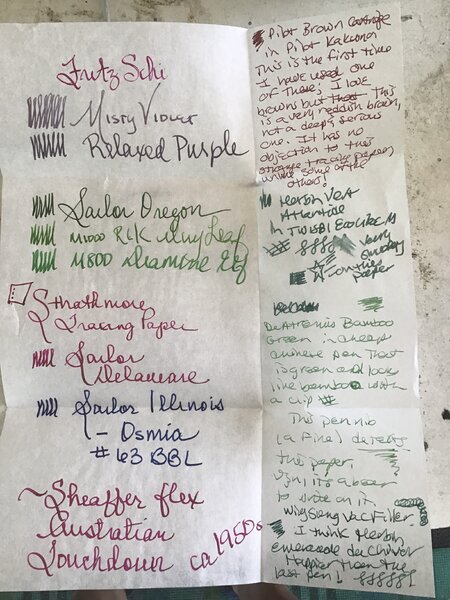 Fritz Schi
Misty Violet
Relaxed Purple
Sailor Oregon
M1000 R&K Alway Leaf
M800 Diamine Elf
Strathmore
Tracing Paper
Sailor
Delaware
Sailor Illinois
- Osmia
#63 BBL
~Sheaffer flex
Australian
Touchdown ca 1950s
Pilot Brown Cartridge
in Pilot Kakuno
This is the first time
I have used one
of these; I love
browns but this
is a very reddish brown,
not a deep serious
one. It has no
objection to this
strange tracing paper,
unlike some of the
others!
Herbin Vert
Atlantide
In TWSBI Eco like M
very
smudgy
on this
paper
DeAtramentis Bamboo
Green in cheap
chinese pen that
is green and looks
like bamboo with
a clip
This pen nib
(a Fine) detests
this paper.
it's a bear
to write on it.
Wing Sung Vac Filler.
I think Herbin
emeraude de Chivor
Happier than the
last pen!